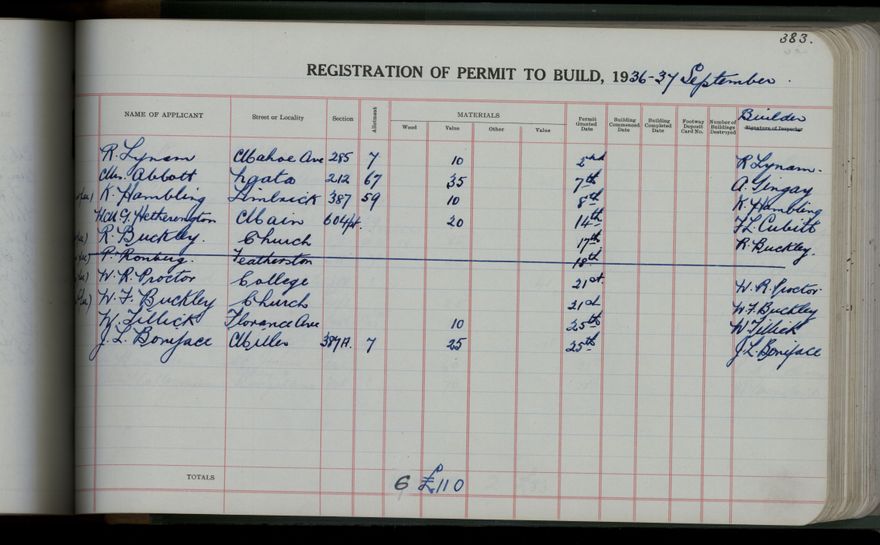 383.
REGISTRATION OF PERMIT TO BUILD, 1936-37 September.
NAME OF APPLICANT Street or Locality Section Allotment MATERIALS Wood Value Other Value Permit Granted Date Building Commenced Date Building Completed Date Footway Deposit Card No. Number of Buildings Destroyed Builder Signature of Inspector
R. Lynam Mahoe Ave 285 7 10 2nd R Lynam.
Mrs. Abbott Ngata 212 67 35 7th A. Gingay
K. Hambling Limbrick 387 59 10 8th K. Hambling
G. Hetherington Main 604/4. 20 14th F.L. Cubitt
R. Buckley. Church 17th R. Buckley.
P. Ronberg. Featherston 18th
W. R. Proctor College 21st. W. R. Proctor
W. F. Buckley Church 21st W. F. Buckley
W. Tillick Florance Ave 10 25th W Tillick
J. L. Boniface Miller 387A. 7 25 25th J. L. Boniface
TOTALS 6 £110